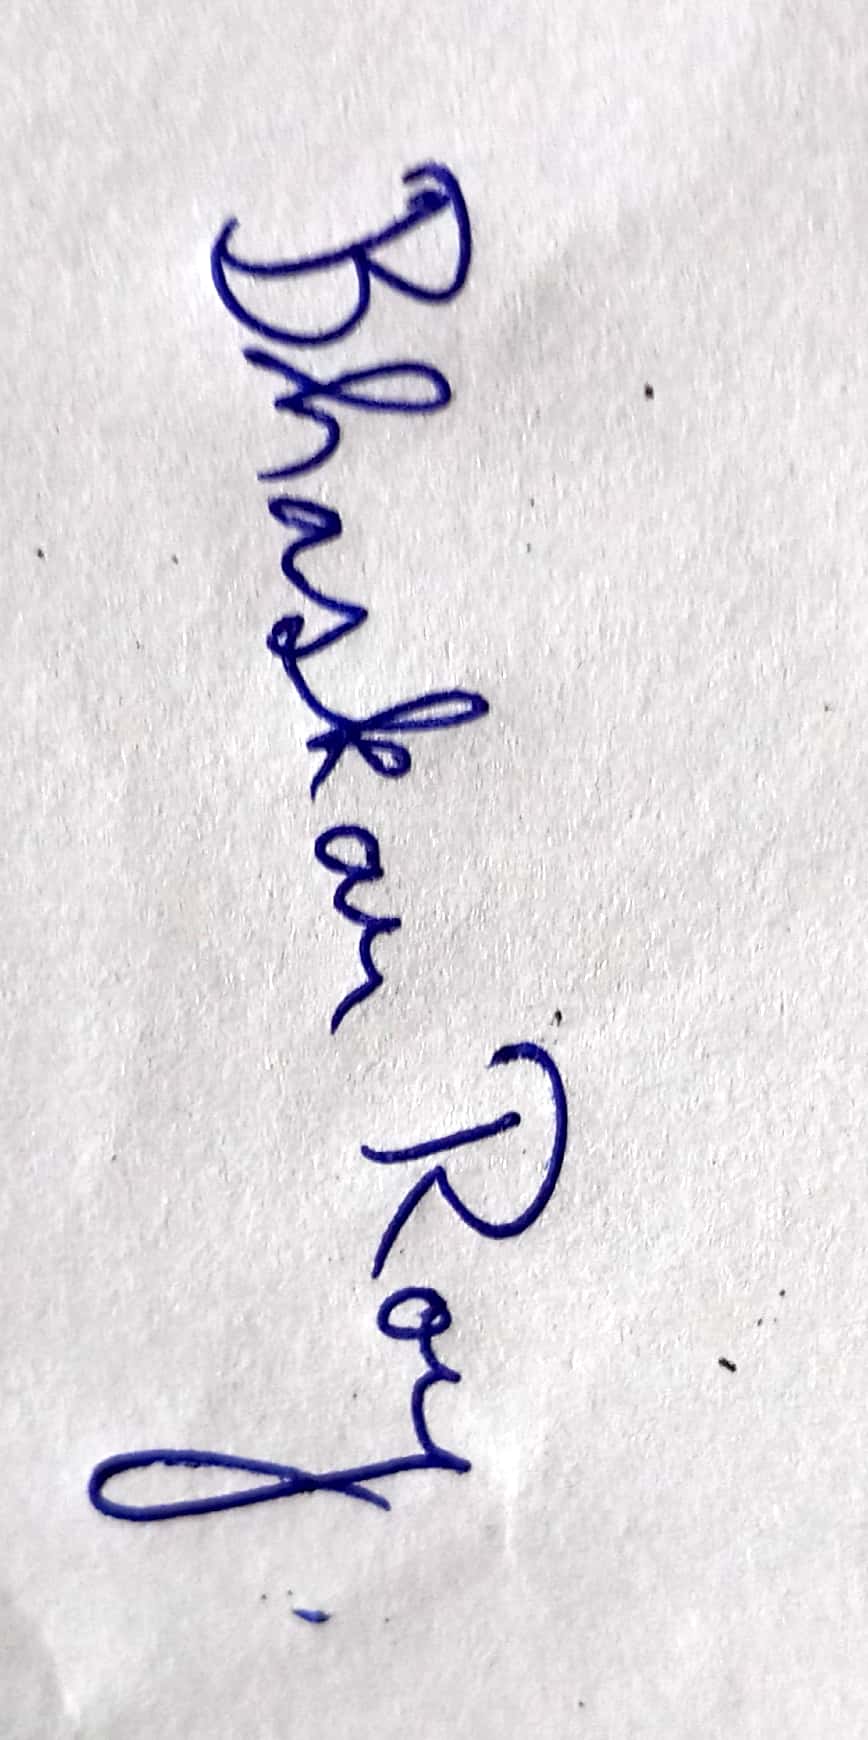 Bhaskar Roy.